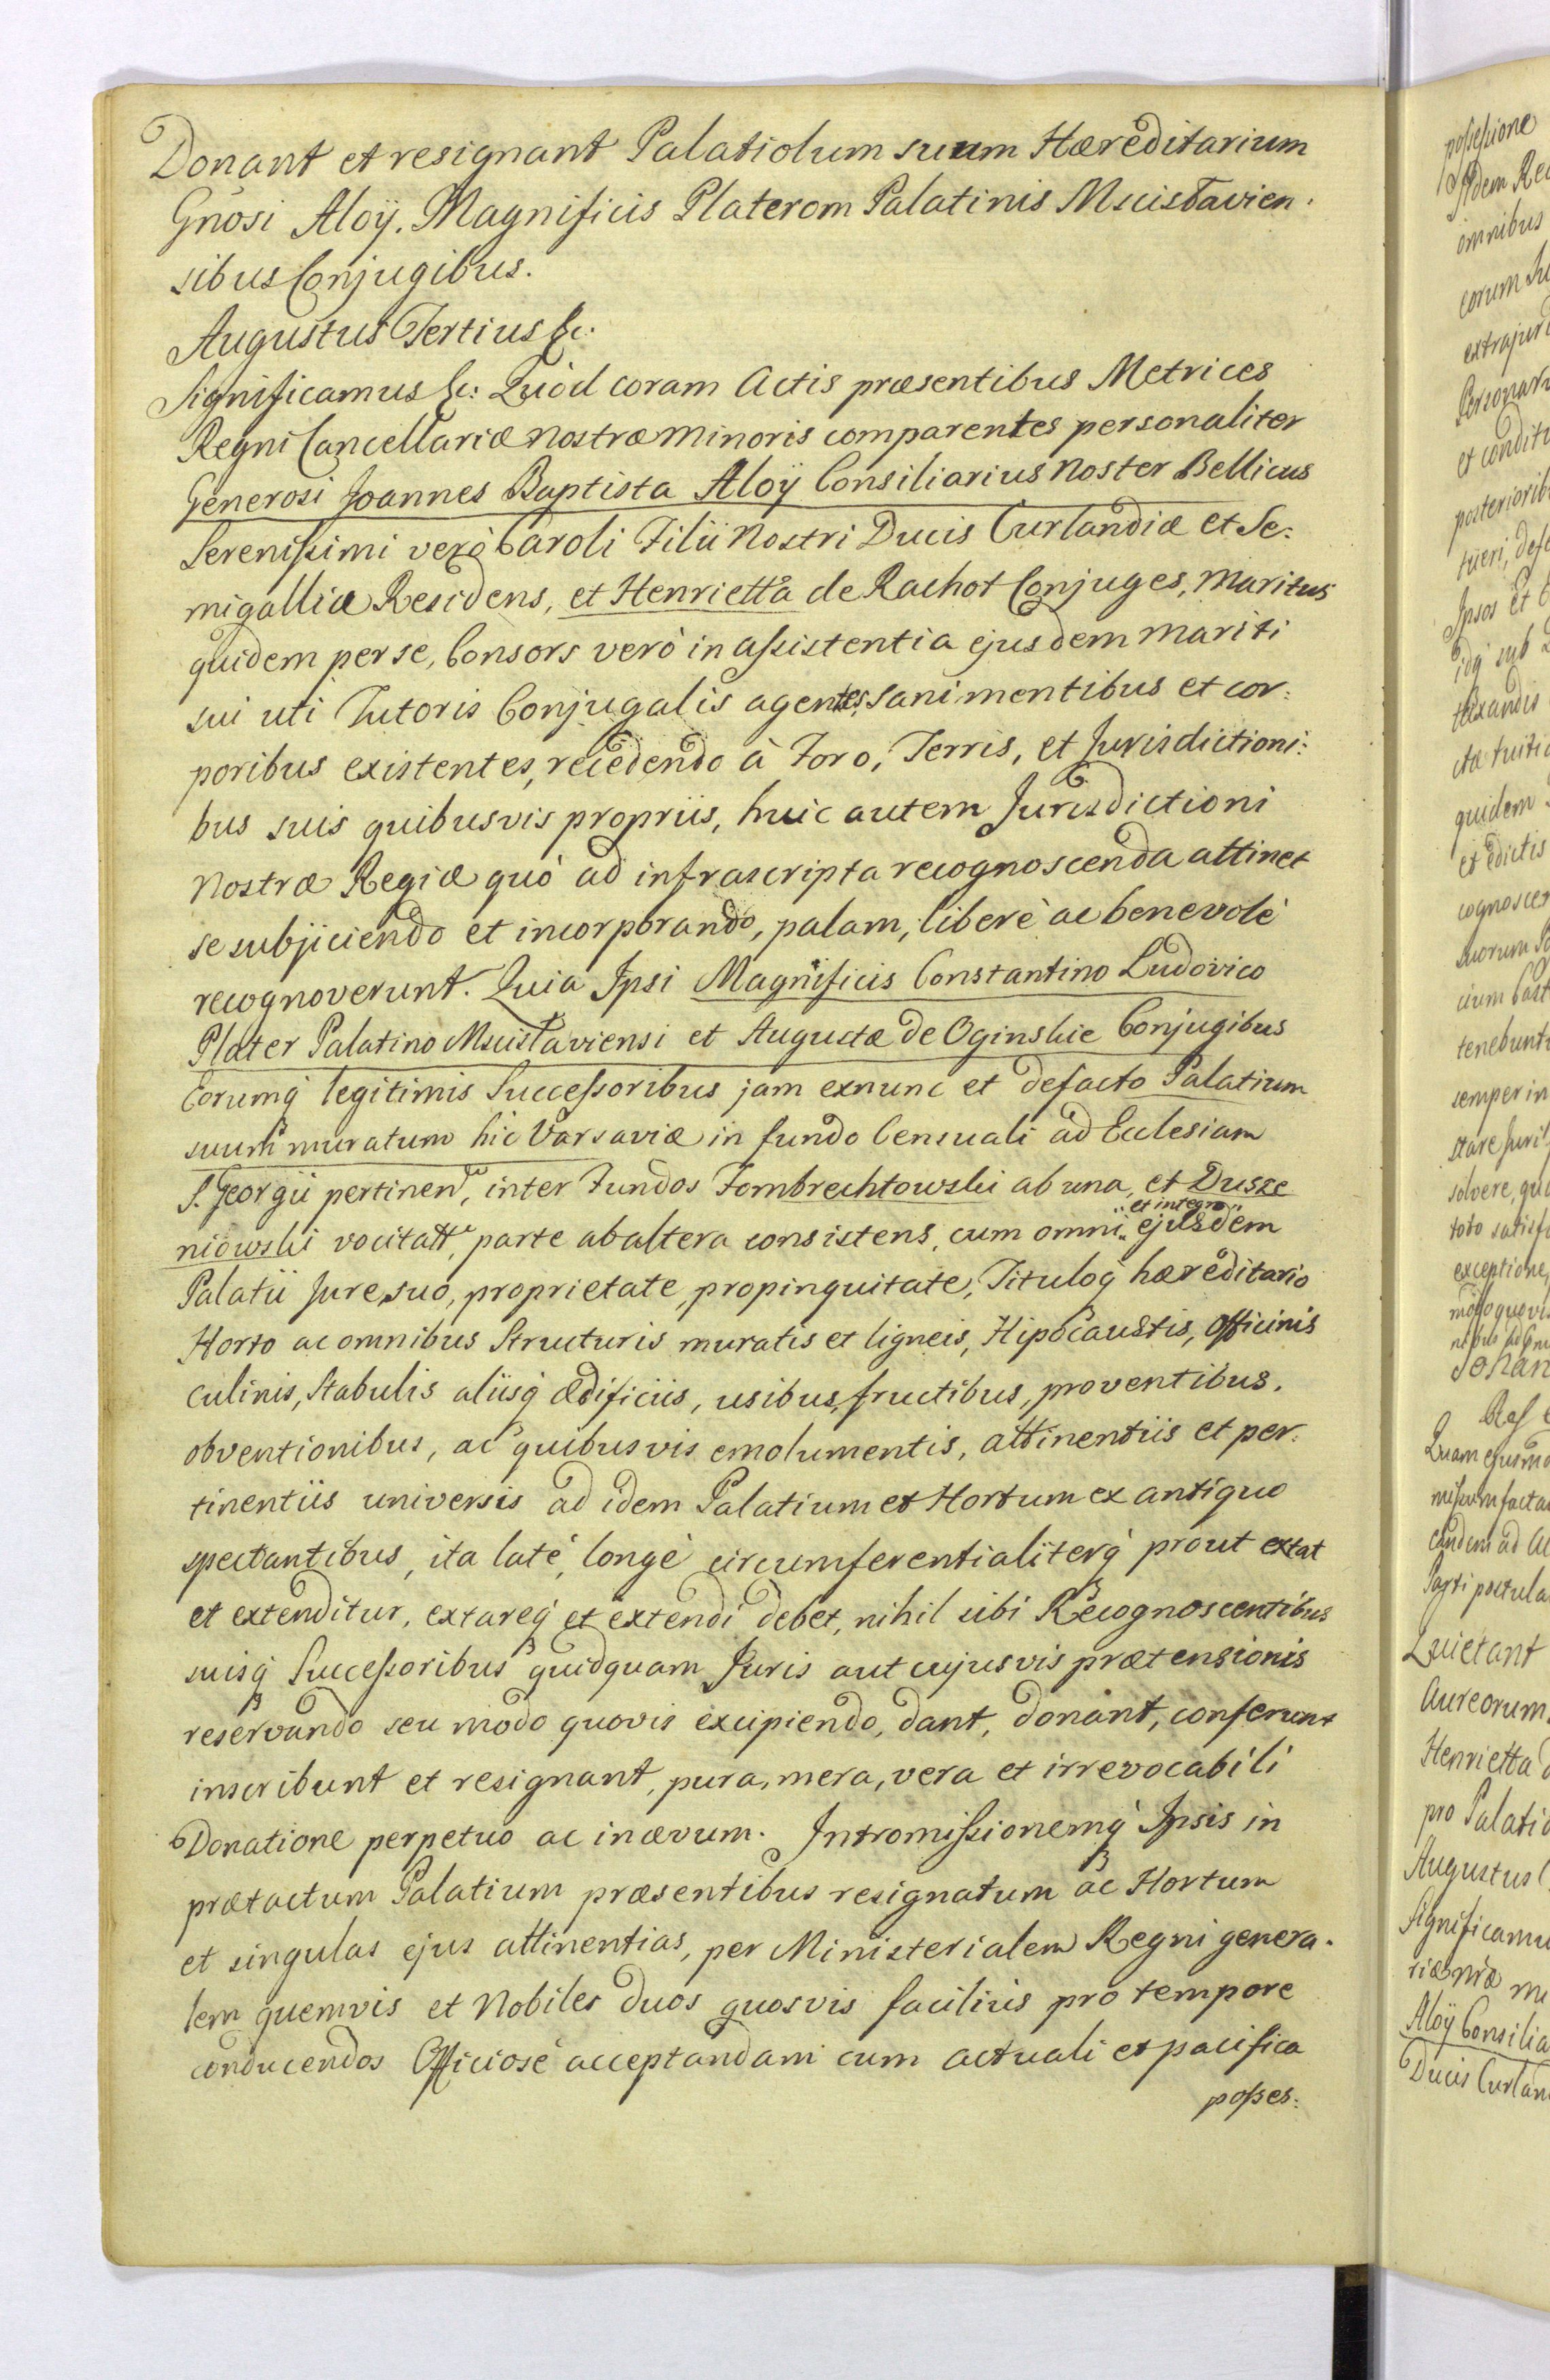 Donant et resignant Palatiolum suum Hæreditarium
Gnosi Aloÿ. Magnificis Platerom Palatinis Mscistavien:
sibus Conjugibus.
Augustus Tertius &c:
Significamus &c: Quòd coram Actis præsentibus Metrices
Regni Cancellariæ nostræ minoris comparentes personaliter
Generosi Joannes Baptista Aloÿ Consiliarius noster Bellicus
Serenissimi verò Caroli Filii Nostri Ducis Curlandiæ et Se:
migalliæ Residens, et Henrietta de Rachot Conjuges, maritus
quidem per se, Consors verò in assistentia ejusdem mariti
sui uti Tutoris Conjugalis agentes, sani mentibus et cor:
poribus existentes, recedendo à Foro, Terris, et Jurisdictioni:
bus suis quibusvis propriis, huic autem Jurisdictioni
nostræ Regiæ quò ad infrascripta recognoscenda attinet
se subjiciendo et incorporando, palam, liberè ac benevolè
recognoverunt. Quia Ipsi Magnificis Constantino Ludovico
Plater Palatino Mscistaviensi et Augustæ de Oginskie Conjugibus
Eorumq́ legitimis Successoribus jam exnunc et defacto Palatium
suum muratum hic Varsaviæ in fundo Censuali ad Ecclesiam
S. Georgii pertinen, inter Fundos Fombrechtowski ab una, et Dusze
niowski vocitatt, parte ab altera consistens, cum omni et integro ejusdem
Palatii Jure, suo, proprietate, propinquitate, Tituloq́ hæreditario
Horto ac omnibus Structuris muratis et ligneis, Hipocaustis, Officinis
Culinis, Stabulis aliisq́ ædificiis, usibus, fructibus, proventibus,
obventionibus, ac quibusvis emolumentis, attinentiis et per:
tinentiis universis ad idem Palatium et Hortum ex antiquo
spectantibus, ita latè, longè circumferentialiterq́ prout extat
et extenditur, extareq́ et extendi debet, nihil sibi Recognoscentibus
suisq́ Successoribus quidquam Juris aut cujusvis prætensionis
reservando seu modo quovis excipiendo, dant, donant, conferunt
inscribunt et resignant, pura, mera, vera et irrevocabili
Donatione perpetuo ac inævum. Intromissionemq́ Ipsis in
prætactum Palatium præsentibus resignatum ac Hortum
et singulas ejus attinentias, per Ministerialem Regni genera:
lem quemvis et Nobiles duos quosvis facilius pro tempore
conducendos Officiosè acceptandam cum actuali et pacifica
posses:
possessione
omnibus
posterioribus
tenebunt
semper in
solvere,
exceptione,
Quietant
Aureorum
Henrietta
pro Palatio
Augustus
Significamus
Aloÿ Consilia
Ducis Curlan